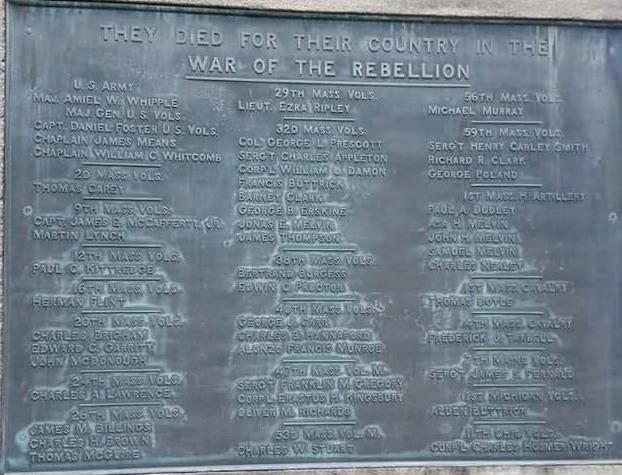 THEY DIED FOR THEIR COUNTRY IN THE
WAR OF THE REBELLION
U.S. ARMY
MAJ. AMIEL W. WHIPPLE
MAJ. GEN. U.S. VOLS.
CAPT. DANIEL FOSTER U.S. VOLS.
CHAPLAIN JAMES MEANS
CHAPLAIN WILLIAM C. WHITCOMB
2D MASS. VOLS.
THOMAS CAREY
9TH MASS. VOLS.
CAPT. JAMES E. MCCAFFERTY, JR.
MARTIN LYNCH
12TH MASS. VOLS.
PAUL C. KITTREDGE
16TH MASS. VOLS.
HERMAN FLINT
23D MASS. VOLS.
CHARLES BRIGHAM
EDWARD C. GARRITY
JOHN MCDONOUGH
24TH MASS. VOLS.
CHARLES A. LAWRENCE
26TH MASS. VOLS.
JAMES M. BILLINGS
CHARLES H. BROWN
THOMAS MCGUIRE
29TH MASS. VOLS.
LIEUT. EZRA RIPLEY
32D MASS. VOLS.
COL. GEORGE L. PRESCOTT
SERG'T CHARLES APPLETON
CORP'L WILLIAM J. DAMON
FRANCIS BUTTRICK
BARNEY CLARK
GEORGE B. ERSKINE
JONAS E. MELVIN
JAMES THOMPSON
38TH MASS. VOLS.
BERTRAND BURGESS
EDWIN C. PROCTOR
40TH MASS. VOLS.
GEORGE J. CARR
CHARLES B. HANNAFORD
ALONZO FRANCIS MUNROE
47TH MASS. VOL. M.
SERG'T FRANKLIN M. GREGORY
CORP'L ERASTUS H. KINGSBURY
OLIVER M. RICHARDS
53D MASS. VOL. M.
CHARLES W. STUART
56TH MASS. VOLS.
MICHAEL MURRAY
59TH MASS. VOLS.
SERG'T HENRY CARLEY SMITH
RICHARD R. CLARK
GEORGE POLAND
1ST MASS. H. ARTILLERY
PAUL A. DUDLEY
ASA H. MELVIN
JOHN H. MELVIN
SAMUEL MELVIN
CHARLES NEALEY
1ST MASS. CAVALRY
THOMAS DOYLE
4TH MASS. CAVALRY
FREDERICK J. TARBELL
7TH MAINE VOLS.
SERG'T JAMES E. FERNALD
1ST MICHIGAN VOLS.
ALDEN BUTTRICK
11TH OHIO VOLS.
CORP'L CHARLES HOSMER WRIGHT